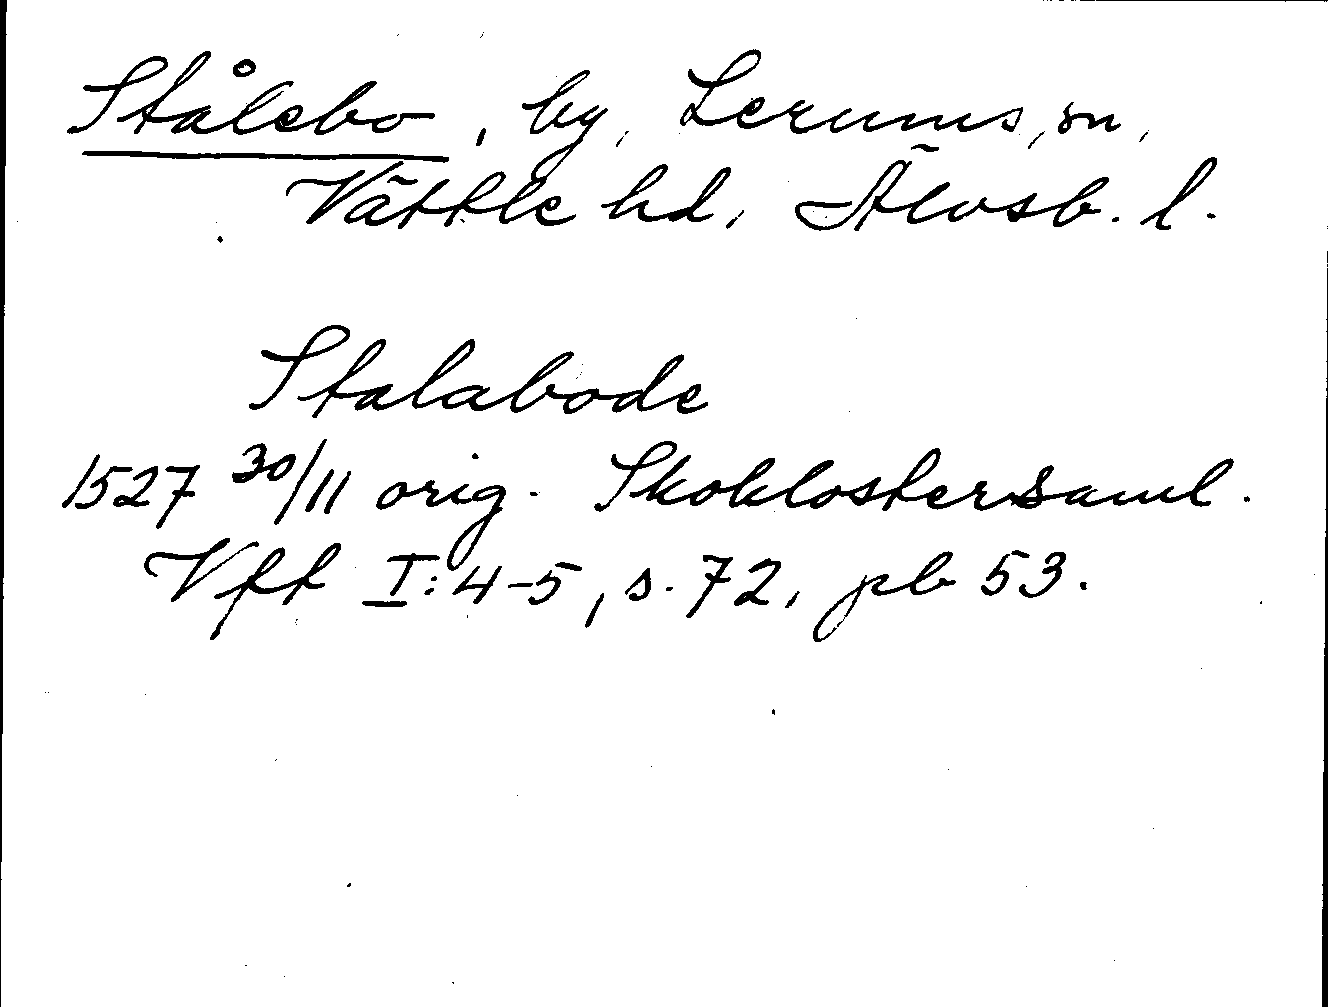 Stålebo, by, Lerums, sn,
Vättle hd, Älvsb. l.
Stalabode
1527 30/11 orig. Skoklostersaml.
Vft I:4-5, s. 72, pb 53.